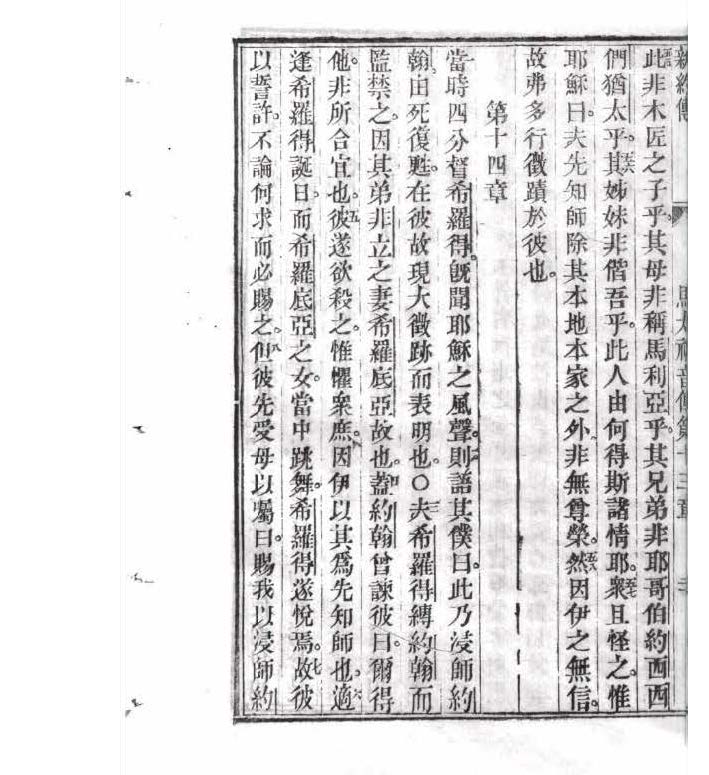 馬太福音傳第十三章
此非木匠之子乎。其母非稱馬利亞乎。其兄弟非耶哥伯約西西
們猶太乎。五六其姊妹非偕吾乎。此人由何得斯諸情耶。五七衆且怪之。惟
耶穌曰。夫先知師除其本地本家之外非無尊榮。五八然因伊之無信。
故弗多行徵蹟於彼也。
第十四章
當時四分督希羅得。旣聞耶穌之風聲。二則語其僕曰。此乃浸師約
翰由死復甦。在彼故現大徵跡而表明也。○三夫希羅得縛約翰而
監禁之。因其弟非立之妻希羅底亞故也。四蓋約翰曾諫彼曰。爾得
他。非所合宜也。五彼遂欲殺之。惟懼衆庶。因伊以其爲先知師也。六適
逢希羅得誕日。而希羅底亞之女。當中跳舞。希羅得遂悅焉。七故彼
以誓許。不論何求而必賜之。八但彼先受母以囑曰。賜我以浸師約